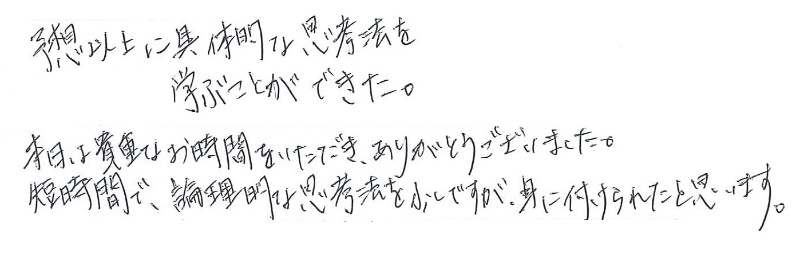 予想以上に具体的な思考法を
学ぶことができた。
本日は貴重なお時間をいただき、ありがとうございました。
短時間で、論理的な思考法を少しですが、身に付けられたと思います。